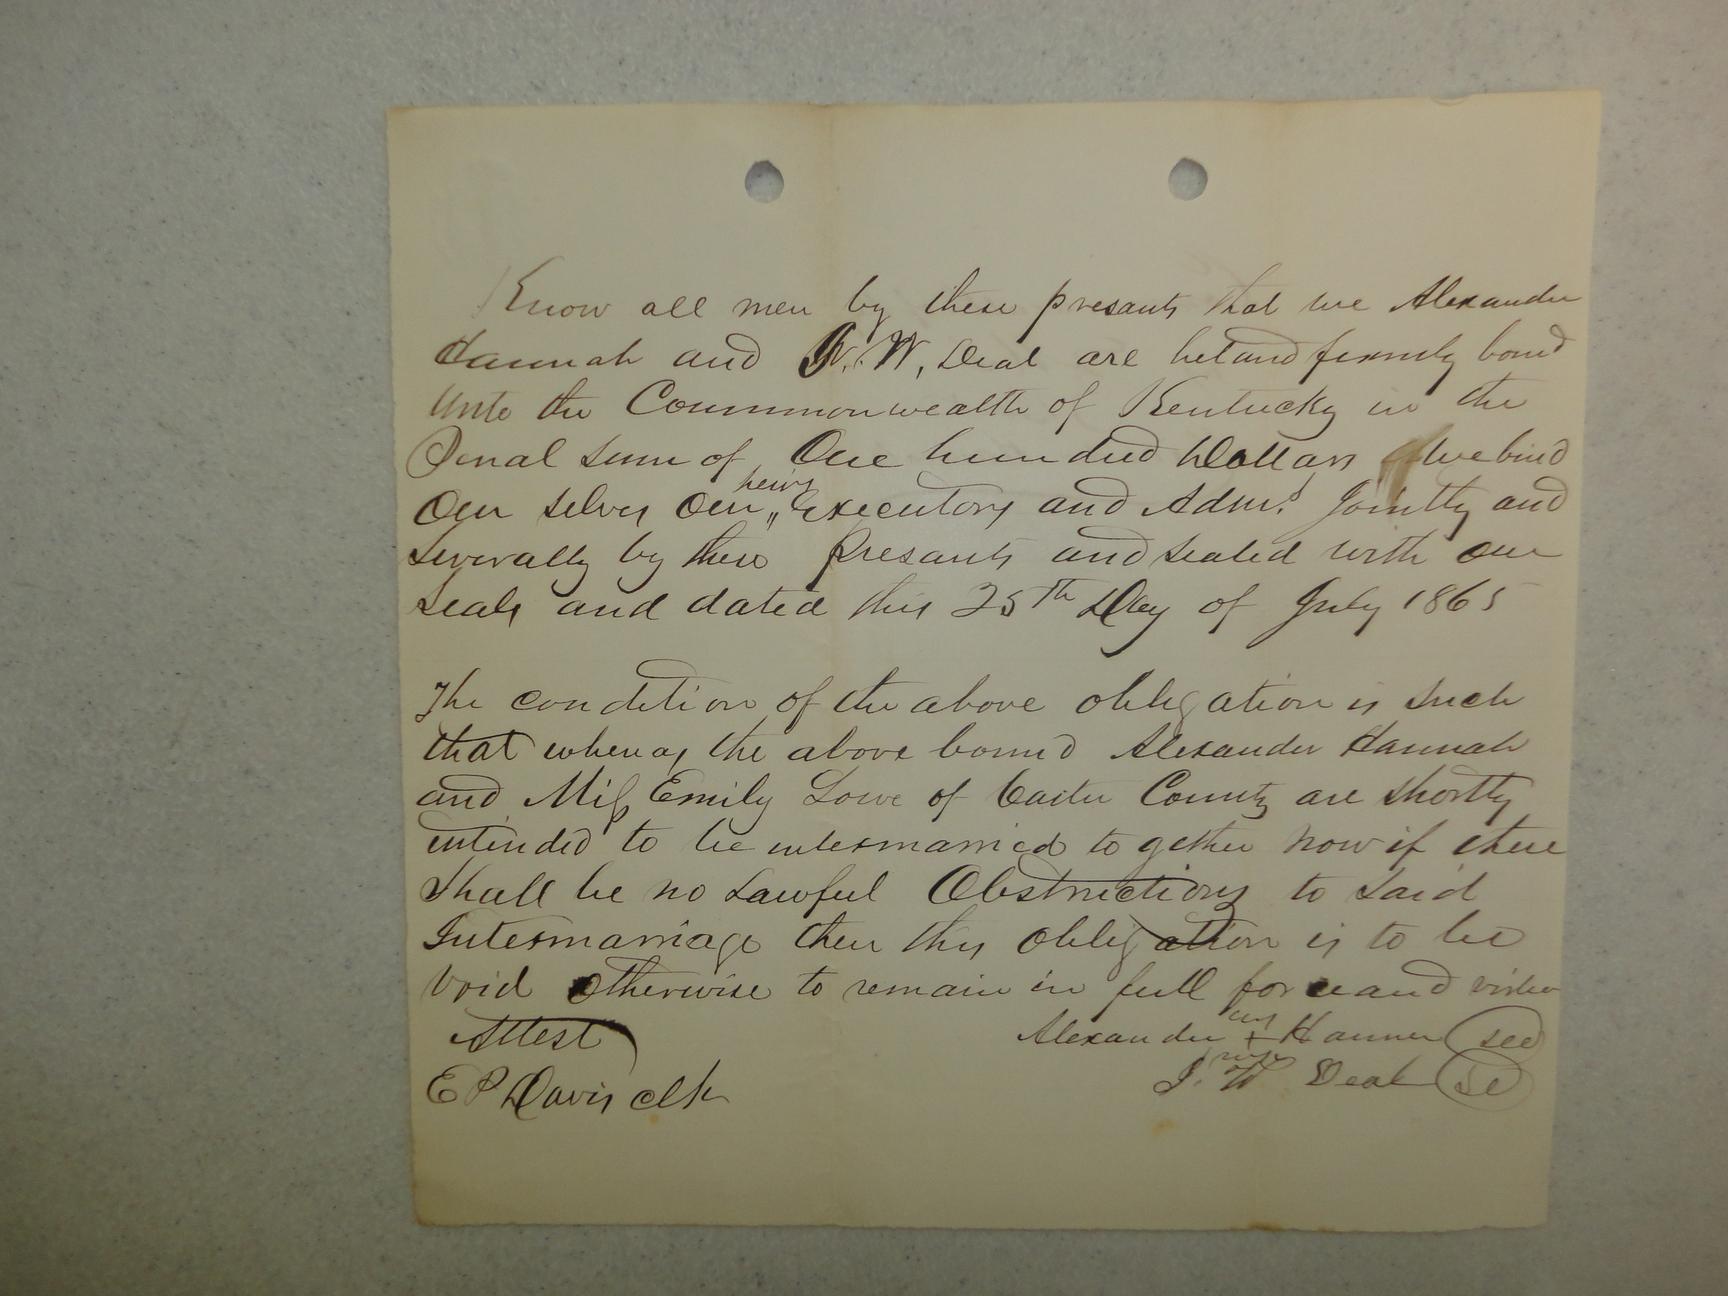 Know all men by these presants that we Alexander
Hannah and J. W. Deal are helt and firmly bound
unto the Commonwealth of Kentucky in the
Penal sum of One hundred Dollars we bind
our selves our heirs Executors and Adms. Jointly and
severally by these presants and sealed with our
seals and dated this 25th Day of July 1865
The condition of the above obligation is such
that whenas the above bound Alexander Hannah
and Miss Emily Lowe of Carter County are shortly
intended to be intermarried to gether now if there
shall be no Lawful Obstructions to said
Intermarriage then this obligation is to be
void otherwise to remain in full force and virtue
Attest
Alexander his + mark Hanner
E P Davis clk
J. W Deal